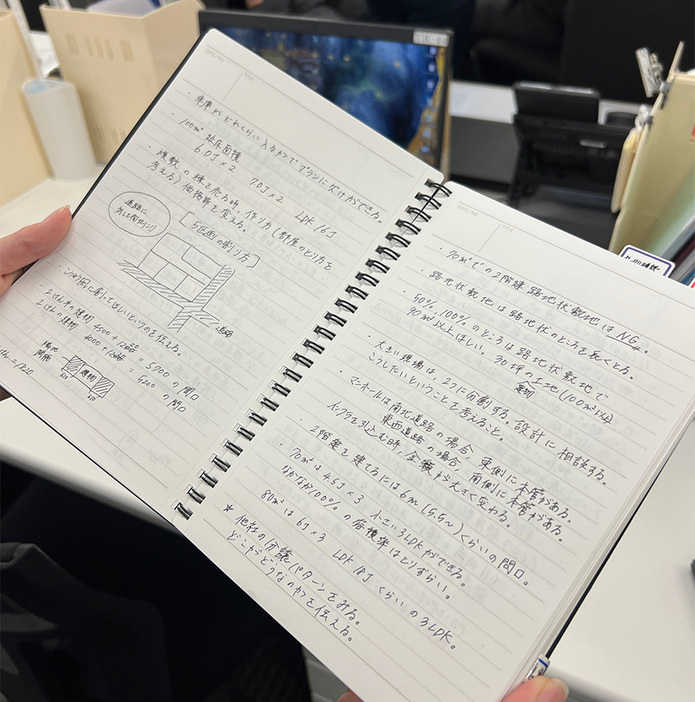 ・車庫がどれくらい入るかでプランに欠けがでてくる。
・100m² 延床面積
6.0J×2 7.0J×2 LDK 16J
・複数の棟を売る時、作り方(部屋のとり方を
考える)価格帯を変える。
道路に
[5区画の割り方]
道路
を伝える。
・2けん半の建物 4500+1200 = 5700の間口
2けんの建物 4000+1200 = 5200の間口
隣地
間隔
建物
・70m²での2階建 路地状敷地はNG。
・路地状敷地は路地状のところを長くとる。
・50%、100%のところは路地状敷地で
90m²以上ほしい。30坪の土地(100m²以上)
・大きい現場は、2つに分割する。設計に相談する。
こうしたいということを考えること。
・マンホールは南北道路の場合、東側に本管がある。
東西道路の場合、南側に本管がある。
インフラを引込む時、金額が大きく変わる。
・2階建を建てるには6m(5.5〜)くらいの間口。
・70m²は4.5J×3 小さい3LDKができる。
なかなか100%の容積率はとりずらい。
80m²は6J×3 LDK 18Jくらいの3LDK。
★他社の分譲パターンをみる。
どこがどうなのか?を伝える。